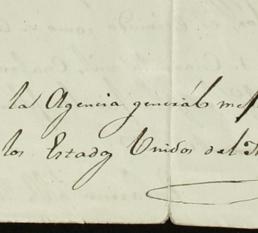 la Agencia general
los Estados Unidos del